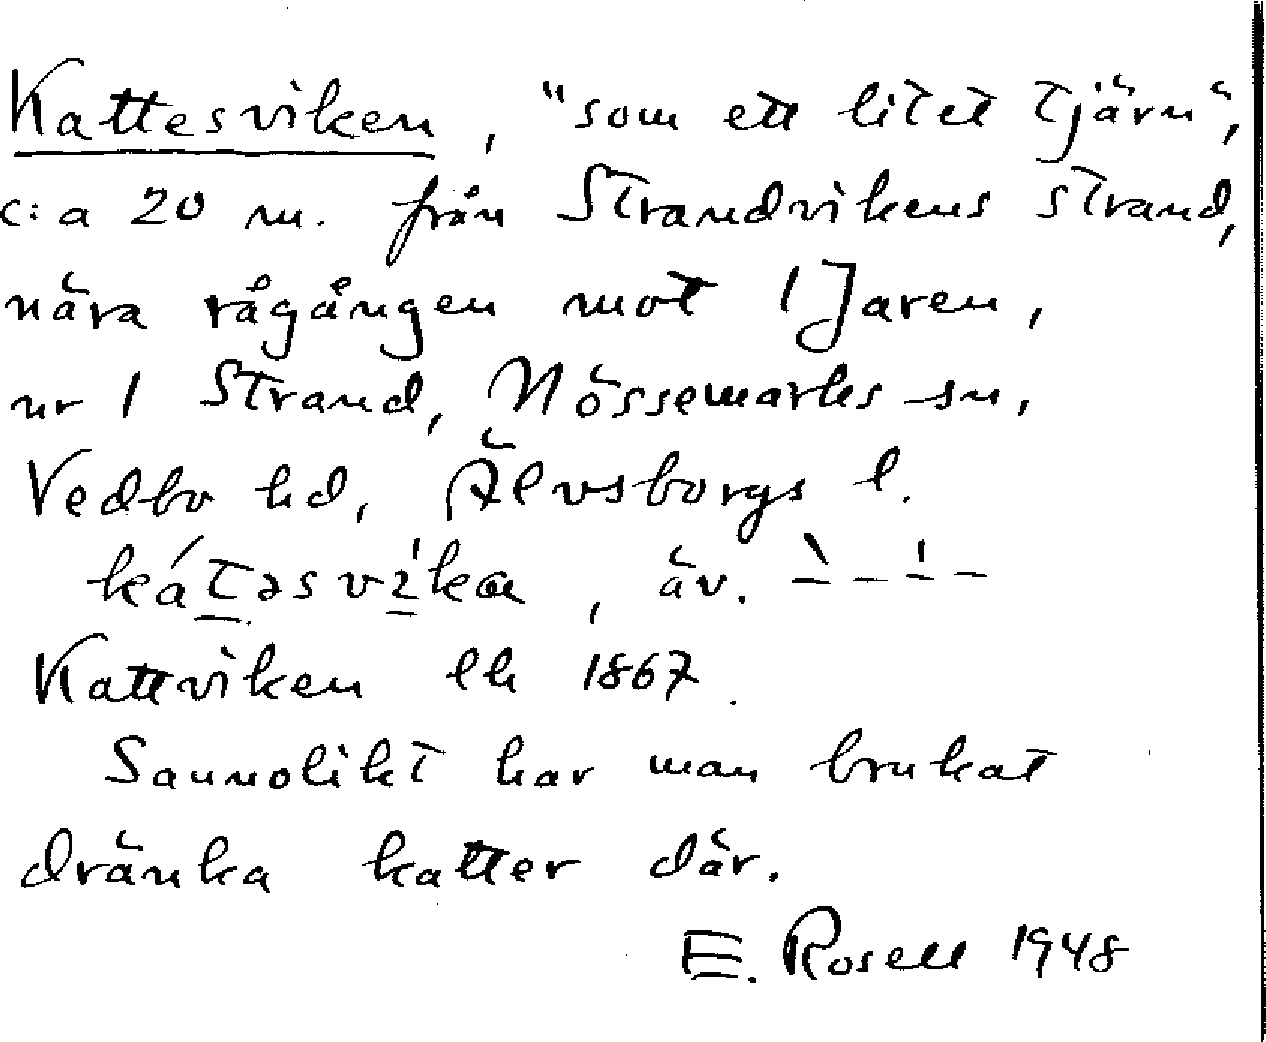 Kattesviken, "som ett litet tjärn",
c:a 20 m. från Strandvikens strand,
nära rågången mot 1 Jaren,
nr 1 Strand, Nössemarks sn,
Vedbo hd, Älvsborgs l.
kátəsvi̱ka, äv. 
Kattviken lh 1867.
Sannolikt har man brukat
dränka katter där.
E. Rosell 1948